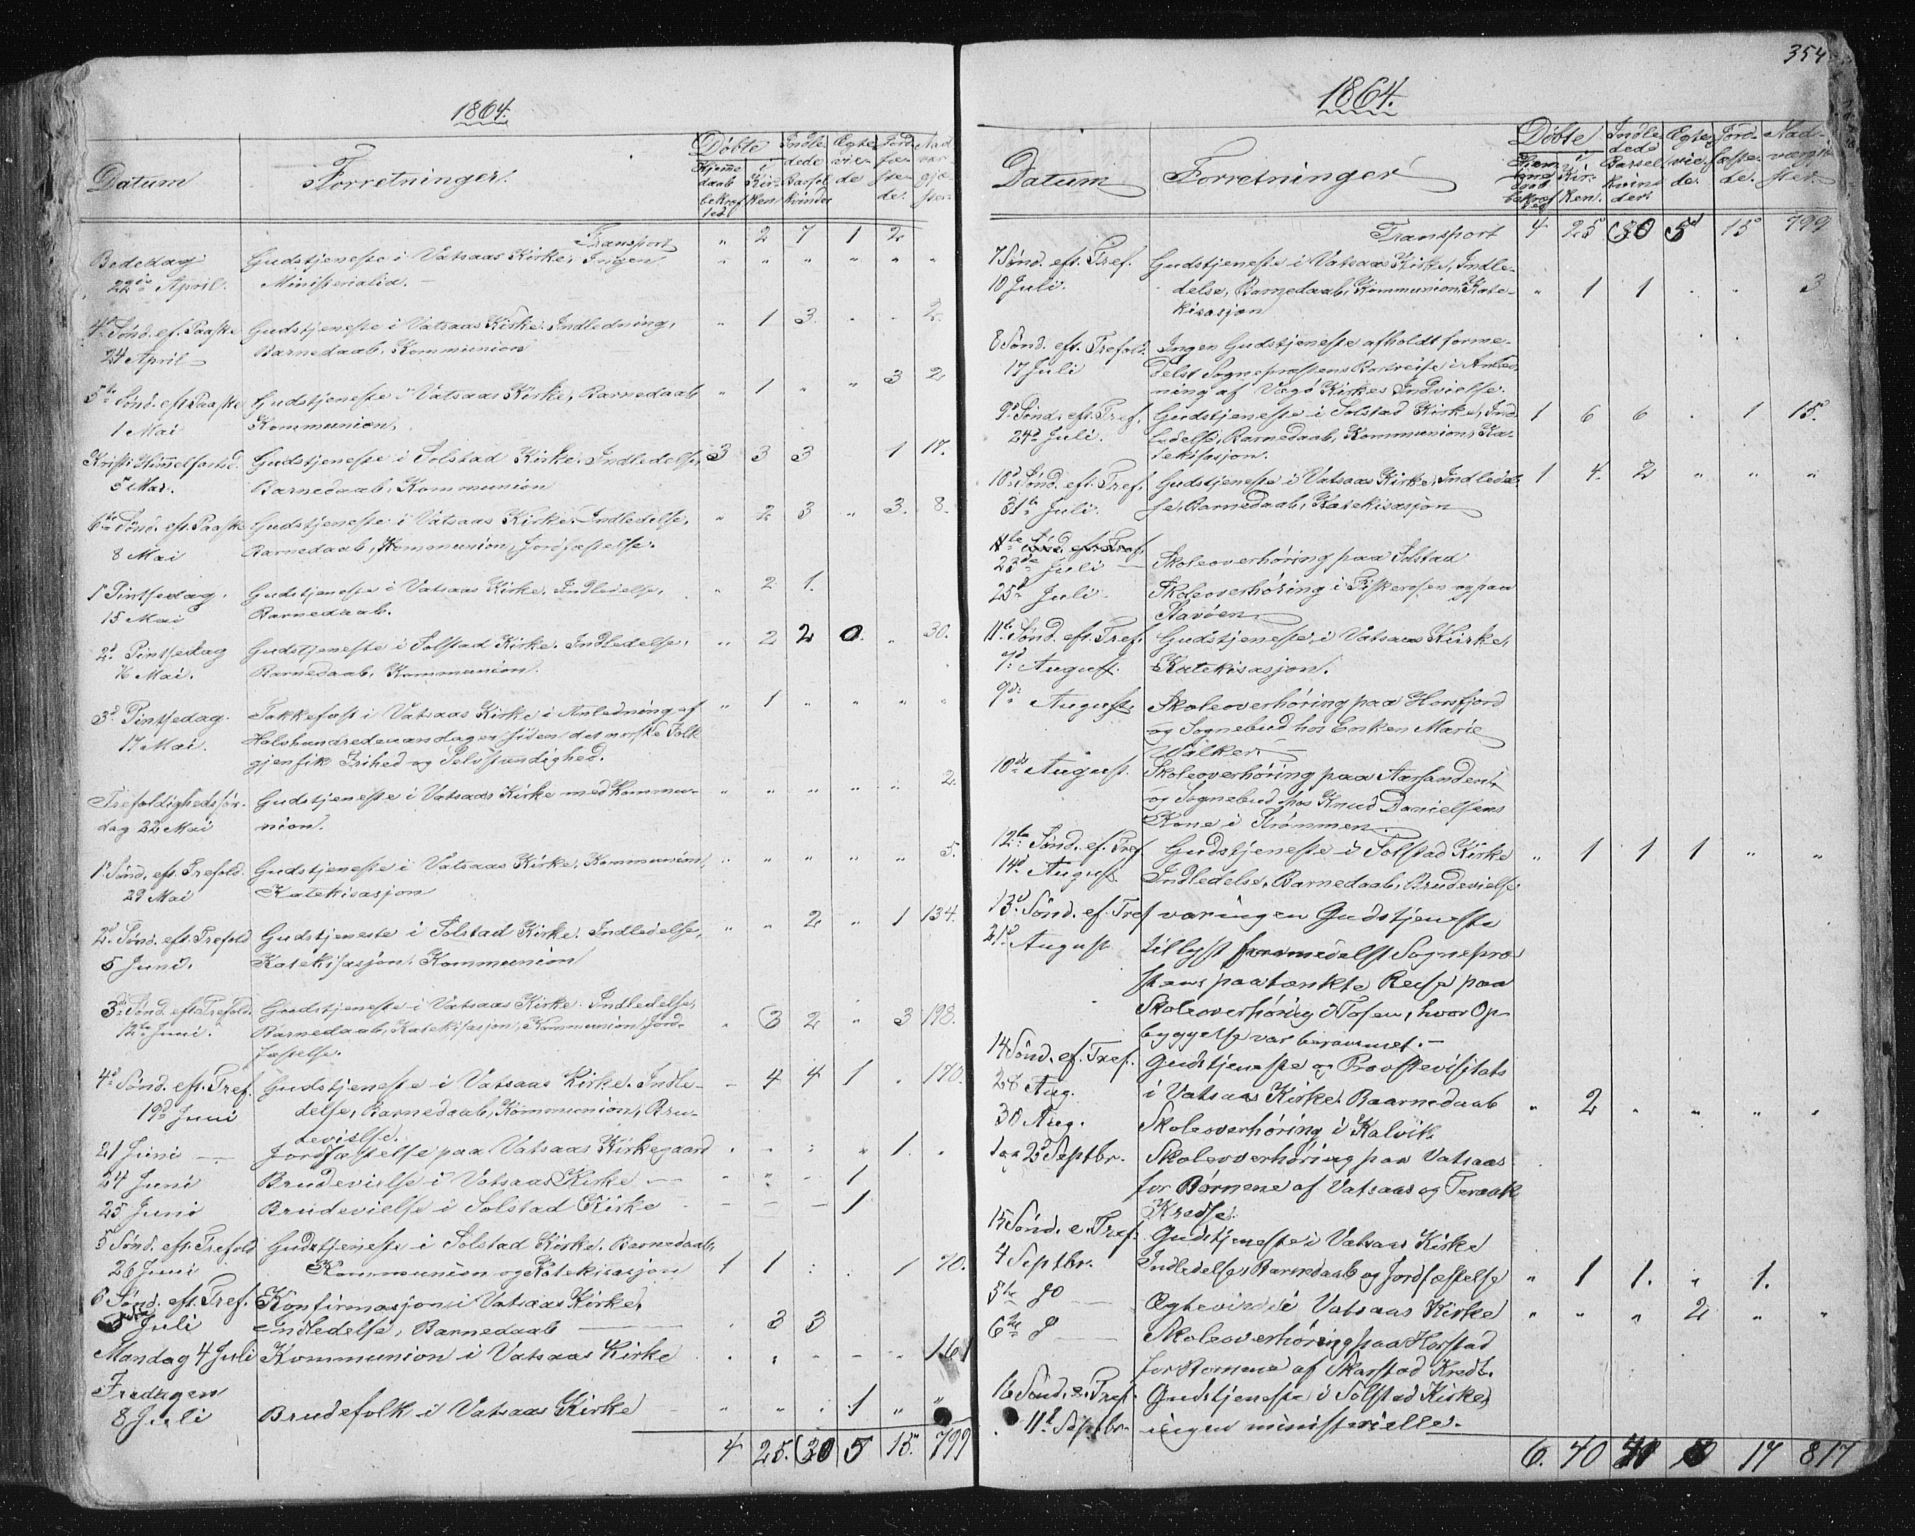 1864.
Datum Forretninger. Døbte Indledede Barselkvinder Ægteviede Jordfæstede. Nadvergjæster.
Hjemmedaab bekræfted i Kirken
Transport " 2 7 1 2
Bededag Gudstjeneste i Vatsaas Kirke, Ingen " " " " " "
22de April. Ministerialia. —
4de Sønd. ef. Paaske Gudstjeneste i Vatsaas Kirke. Indledning, " 1 3 . . 2.
24 April — Barnedaab, Kommunion
5te Sønd. eft. Paaske Gudstjeneste i Vatsaas Kirke, Barnedaab " 1 " " 3 2
1 Mai Kommunion.
Kristi Himmelfartsd. Gudstjeneste i Solstad Kirke. Indledelse, 3 3 3 1 17.
5 Mai. Barnedaab, Kommunion
6te Sønd. eft. Paaske Gudstjeneste i Vatsaas Kirke. Indledelse, " 2 3 " 3. 8.
8 Mai Barnedaab, Kommunion, Jordfæstelse.
1 Pintsedag. Gudstjeneste i Vatsaas Kirke. Indledelse, " 2 1.
15 Mai Barnedaab.
2d Pintsedag Gudstjeneste i Solstad Kirke. Indledelse, " 2 2 0. " 30.
16 Mai. Barnedaab, Kommunion.
3d Pintsedag. Takkefest i Vatsaas Kirke i Anledning af " 1 " " " "
17 Mai. Halvhundredeaarsdagen siden det norske Folk
gjenfik Frihed og Selvstændighed.
Trefoldighedssøn- Gudstjeneste i Vatsaas Kirke med Kommu- " " " " " 2
dag 22 Mai nion.
1s Sønd. eft. Trefold. Gudstjeneste i Vatsaas Kirke, Kommunion, " " " " " 5.
29 Mai Katekisasjon
2d Sønd. eft. Trefold Gudstjeneste i Solstad Kirke. Indledelse, " " 2 " 1 134.
5 Juni. Katekisasjon. Kommunion
3d Sønd. eft. Trefold. Gudstjeneste i Vatsaas Kirke. Indledelse, " 3 2 " 3 198.
12te Juni. Barnedaab, Katekisasjon, Kommunion, Jord-
fæstelse.
4d Sønd. eft. Tref. Gudstjeneste i Vatsaas Kirke. Indle- - 4 4 1 . 170.
19d Juni delse, Barnedaab, Kommunion, Bru-
devielse.
21 Juni — Jordfæstelse paa Vatsaas Kirkegaard . . . " 1. .
24 Juni Brudevielse i Vatsaas Kirke — - - " 1
25 Juni Brudevielse i Solstad Kirke - — — — 1
5 Sønd. eft. Trefold Gudstjeneste i Solstad Kirke. Barnedaab, 1 1 : . 1 70.
26 Juni Kommunion og Katekisasjon
6 Sønd. eft. Tref. Konfirmasjon i Vatsaas Kirke,
Juli Indledelse, Barnedaab — . 3 3
Mandag 4 Juli Kommunion i Vatsaas Kirke . . - - . 161
Fredagen
8 Juli Brudefolk i Vatsaas Kirke - " " . 1 " "
4 25. 30 5 15. 799
354
1864.
Datum Forretninger Døbte Indledede Barselkvinder. Ægteviede. Jordfæstede. Nadvergjæster.
Hjemmedaab bekræfted i Kirken.
Transport 4 25 30 5 15 799
7 Sønd. eft. Tref. Gudstjeneste i Vatsaas Kirke, Indle-
10 Juli. delse, Barnedaab, Kommunion, Kate- " 1 1 . . 3
kisasjon
8 Sønd. eft. Trefold. Ingen Gudstjeneste afholdt forme-
17 Juli delst Sognepræstens Bortreise i Anled-
ning af Vegø Kirkes Indvielse.
9d Sønd. eft. Tref. Gudstjeneste i Solstad Kirke, Ind- 1 6 6 . 1 15.
24d Juli. ledelse, Barnedaab, Kommunion, Ka-
tekisasjon.
10d Sønd. eft. Tref. Gudstjeneste i Vatsaas Kirke, Indledel- 1 4. 2 " " "
31te Juli. se, Barnedaab, Katekisasjon
11te Sønd. eft. Tref.
23de Juli — Skoleoverhøring paa Solstad
25d Juli. Skoleoverhøring i Fiskerosen og paa
Stavøen
11te Sønd. eft. Tref. Gudstjeneste i Vatsaas Kirke,
7d August. Katekisasjon.
9de August. Skoleoverhøring paa Horsfjord
og Sognebud hos Enken Marie
Walker
10de August. Skoleoverhøring paa Aarsanden
og Sognebud hos Knud Danielsens
Kone i Strømmen.
12te Sønd. ef. Tref Gudstjeneste i Solstad Kirke " 1 1 1 " "
14d August Indledelse, Barnedaab, Brudevielse
13d Sønd. ef. Tref var ingen Gudstjeneste
21d August tillyst formedelst Sognepræ-
stens paatænkte Reise paa
Skoleoverhøring i Tosen, hvor Op-
byggelse var berammet. —
14 Sønd. ef. Tref. Gudstjeneste og Provstevisitats
28 Aug. i Vatsaas Kirke. Baarnedaab " 2 " " " "
30 Aug. Skoleoverhøring i Kalvik
1 og 2d Septbr. Skoleoverhøring paa Vatsaas
for Børnene af Vatsaas og Teraak
Kredse.
15 Sønd. e. Tref. Gudstjeneste i Vatsaas Kirke
4 Septbr. Indledelse, Barnedaab og Jordfæstelse " 1 1. " 1.
5te do — Ægteviede i Vatsaas Kirke " " " 2 " "
6te d — Skoleoverhøring paa Horstad
for Børnene af Skarstad Kreds.
16 Sønd. e. Tref. Gudstjeneste i Solstad Kirke,
11d Septbr. ingen ministerielle.
6. 40 41 8 17 817